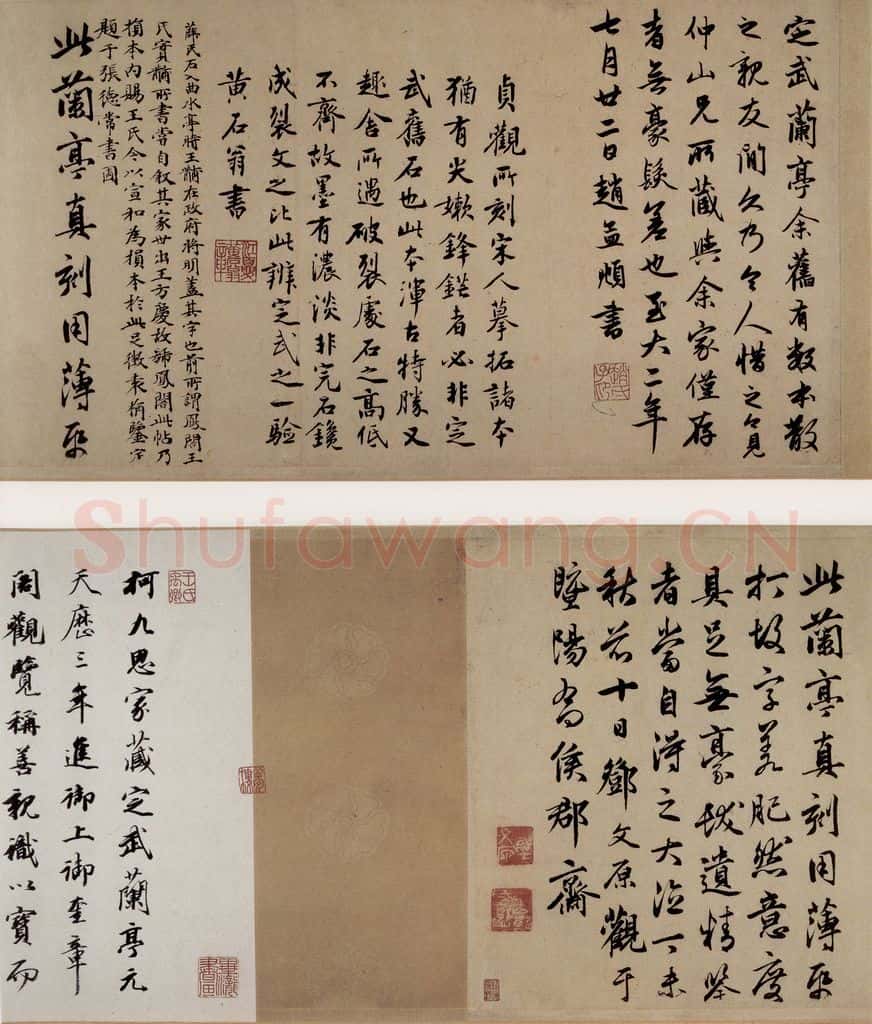 定武蘭亭余舊有數本散
之親友間久乃令人惜之今見
仲山兄所藏與余家僅存
者無豪髮差也至大二年
七月廿二日趙孟頫書
貞觀所刻宋人摹拓諸本
猶有尖嫩鋒鋩者必非定
武舊石也此本渾古特勝又
趣舍所遇破裂處石之高低
不齊故墨有濃淡非完石鑱
成裂文之比此辨定武之一驗
黃石翁書
薛氏石入曲水亭時王黼在政府將明蓋其字也前所謂鳳閣王
氏寶黼所書嘗自叙其家世出王方慶故稱鳳閣此帖乃
損本內賜王氏今以宣和為損本於此足徵袁桷鑒定
題于張德常書囿
此蘭亭真刻用薄帋
此蘭亭真刻用薄帋
打故字差肥然意度
具足無豪髮遺精鑒
者當自得之大德丁未
秋前十日鄧文原觀于
睢陽喬侯郡齋
柯九思家藏定武蘭亭元
天曆三年進御上御奎章
閣觀覽稱善親識以寶而
Shufawang.CN